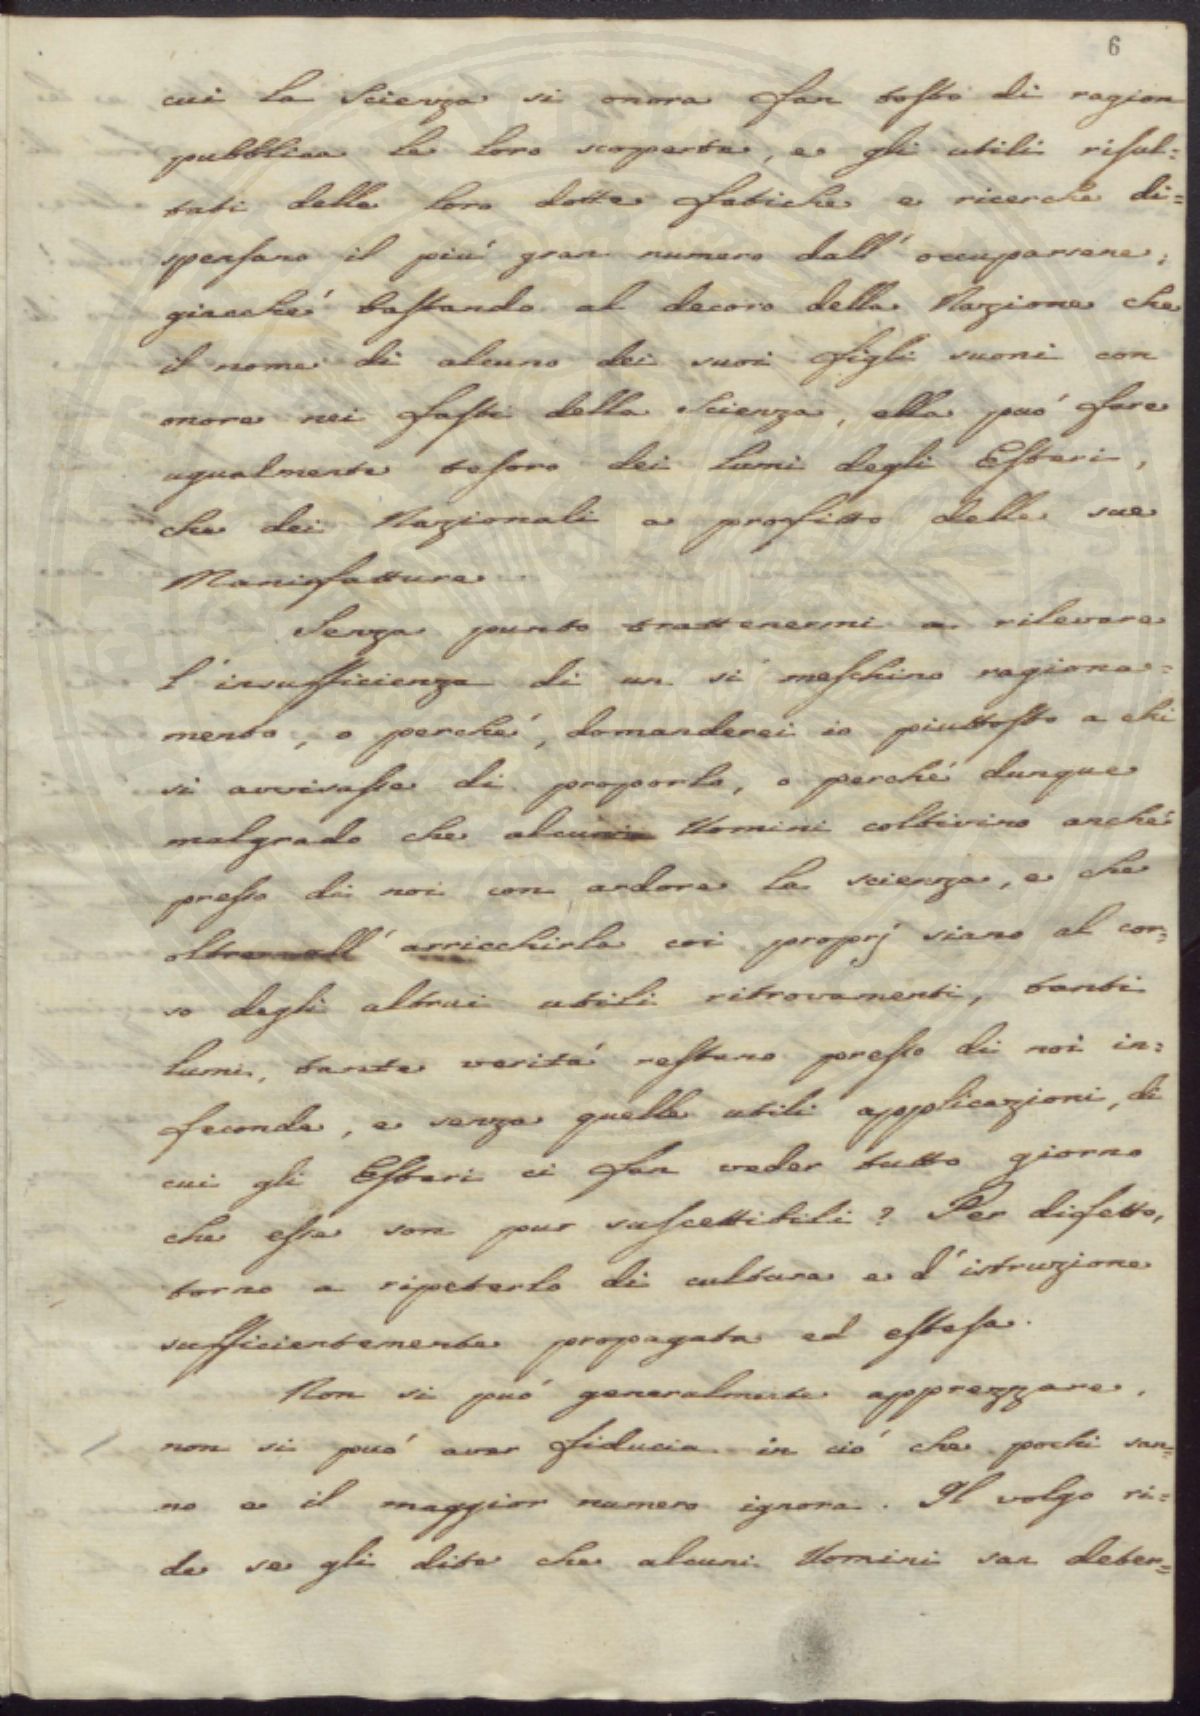 6
cui la Scienza si onora fan tosto di ragion
pubblica le loro scoperte, e gli utili risul=
tati delle loro dotte fatiche e ricerche di=
spensano il più gran numero dall' occuparsene;
giacché bastando al decoro della Nazione che
il nome di alcuno dei suoi figli suoni con
onore nei fasti della Scienza, ella può fare
ugualmente tesoro dei lumi degli Esteri,
che dei Nazionali a profitto delle sue
Manifatture
Senza punto trattenermi a rilevare
l'insufficienza di un sì meschino ragiona=
mento, o perché, domanderei io piuttosto a chi
si avvisasse di proporlo, o perché dunque
malgrado che alcuni Uomini coltivino anche
presso di noi con ardore la scienza, e che
oltre all' arricchirla coi proprj siano al cor=
so degli altrui utili ritrovamenti, tanti
lumi, tante verità restano presso di noi in=
feconde, e senza quelle utili applicazioni, di
cui gli Esteri ci fan veder tutto giorno
che esse son pur suscettibili? Per difetto,
torno a ripeterlo di cultura e d'istruzione
sufficientemente propagata ed estesa.
Non si può generalmente apprezzare,
non si può aver fiducia in ciò che pochi san=
no e il maggior numero ignora. Il volgo ri=
de se gli dite che alcuni Uomini san deter=